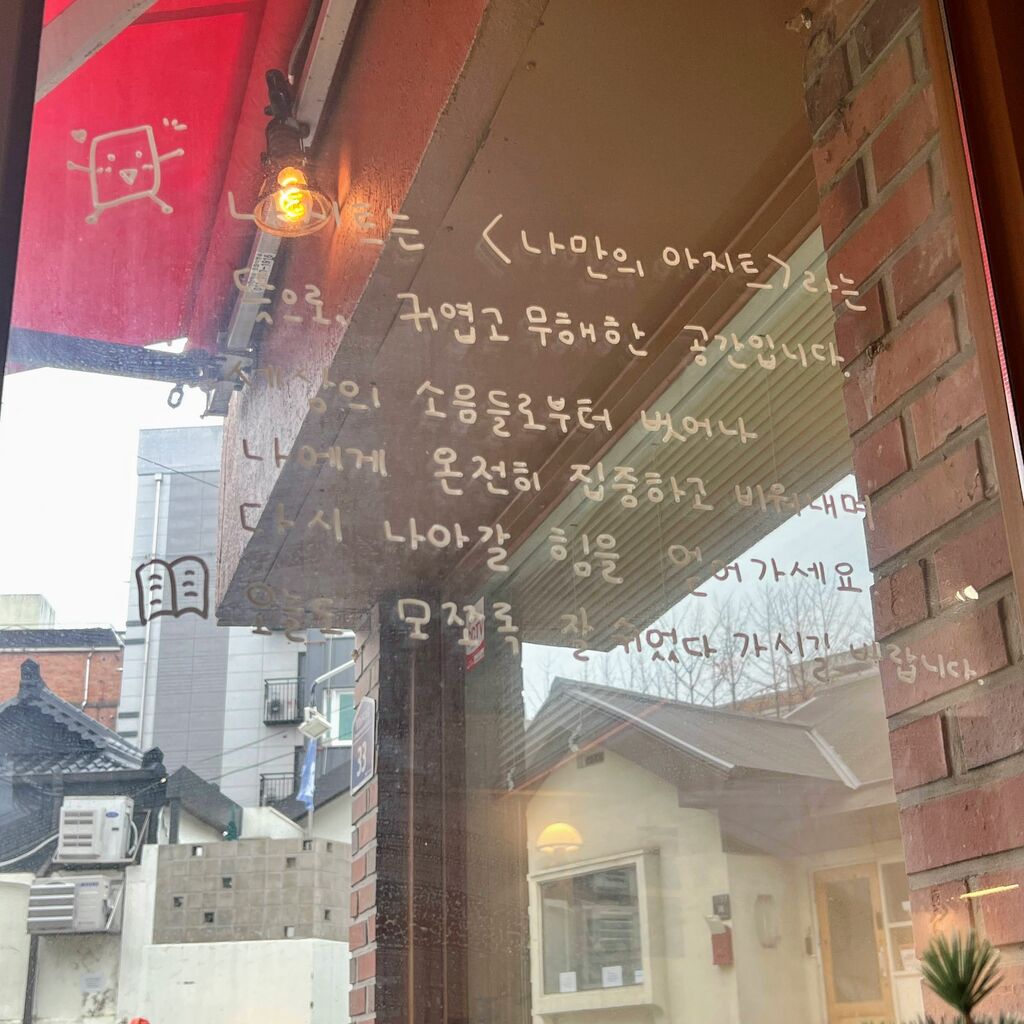 <나만의 아지트>라는
뜻으로, 귀엽고 무해한 공간입니다
세상의 소음들로부터 벗어나
나에게 온전히 집중하고 비워내며
다시 나아갈 힘을 얻어가세요
오늘도 모쪼록 잘 쉬었다 가시길 바랍니다.
33